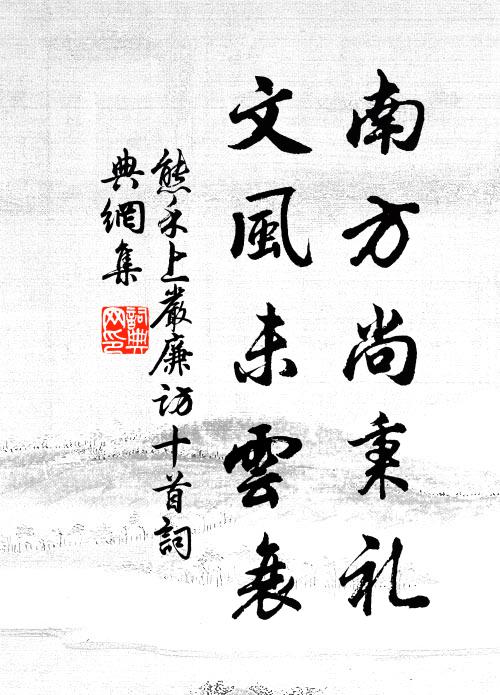 南方尚秉礼
文風未雲衰
熊禾上嚴廉訪十首詞
典網集
詞典
网印